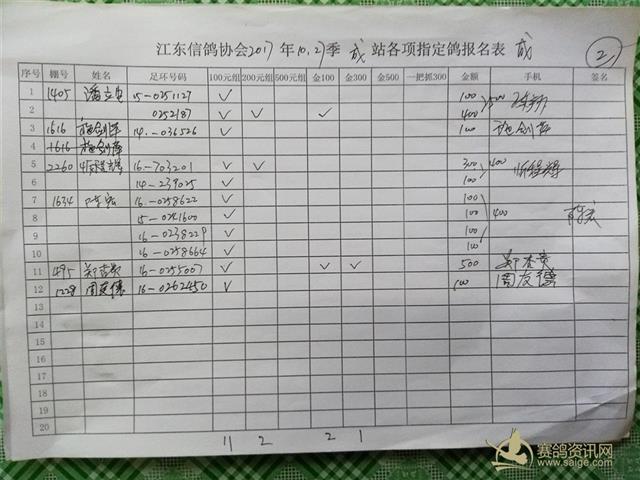 江东信鸽协会2017年10.27季 咸 站各项指定鸽报名表 咸 ②
序号 棚号 姓名 足环号码 100元组 200元组 500元组 金100 金300 金500 一把抓300 金额 手机 签名
1 1405 15-0251127 ✓ 100
2 0252187 ✓ ✓ ✓ 400
3 1616 施剑萍 14-036526 ✓ 100 施剑萍
4 1616 施剑萍
5 2260 16-703201 ✓ ✓ 300 400
6 14-239025 ✓ 100
7 1634 陈宏 16-0258622 ✓ 100
8 15-0241600 ✓ 100 400
9 16-0238229 ✓ 100
10 16-0258664 ✓ 100
11 495 16-0255007 ✓ ✓ ✓ 500
12 1228 周友德 16-0262450 ✓ 100 周友德
13
14
15
16
17
18
19
20
11 2 2 1
赛鸽资讯网
www.saige.com